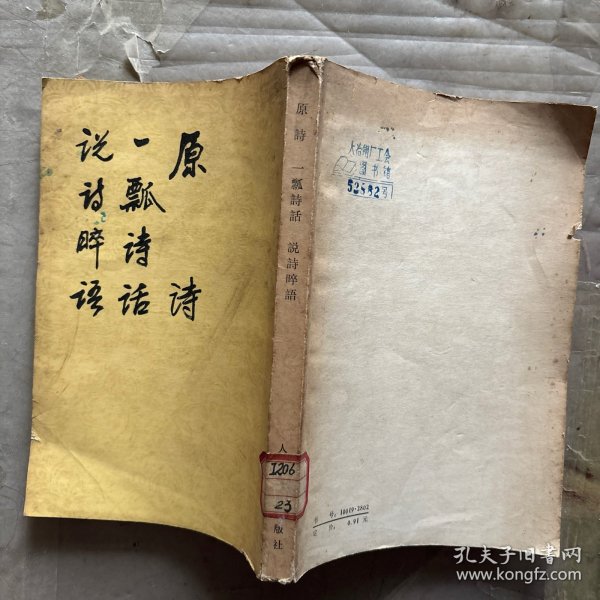 原诗
一瓢诗话
说诗晬语
原詩 一瓢詩話 説詩晬語
人
I206
23
版社
大冶钢厂工会
图书馆
52882号
书号：10019·2802
定价：0.91元
孔夫子旧书网
www.kongfz.com